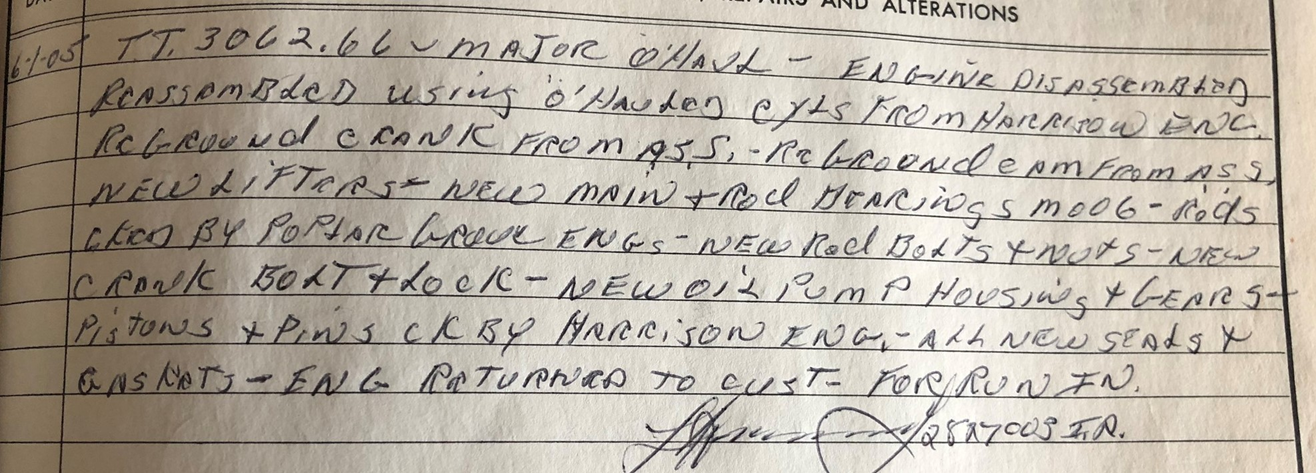 AND ALTERATIONS
6-1-05 T.T. 3062.66 - MAJOR O'HAUL - ENGINE DISASSEMBLED
REASSEMBLED USING O'HAULED CYLS FROM HARRISON ENG.
REGROUND CRANK FROM ASS. - REGROUND CAM FROM ASS,
NEW LIFTERS - NEW MAIN + Rod BEARINGS M006 - Rods
CKED BY POPLAR GROVE ENGS - NEW Rod BOLTS + NUTS - NEW
CRANK BOLT + LOCK - NEW OIL PUMP HOUSING + GEARS -
PISTONS + PINS CK BY HARRISON ENG. - ALL NEW SEALS +
GASKETS - ENG RETURNED TO CUST - FOR RUN IN.
I.A.